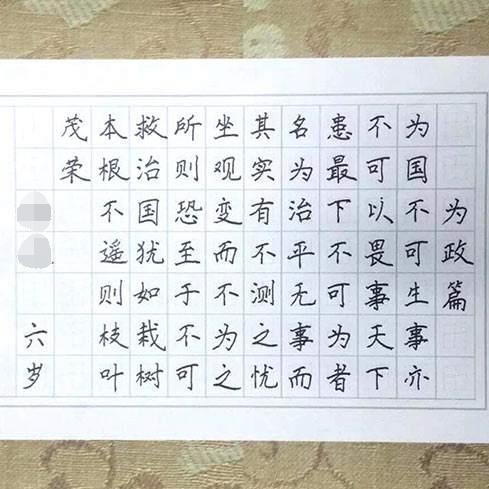 为政篇
为国不可生事亦
不可以畏事天下
患最下不可为者
名为治平无事而
其实有不测之忧
坐观变而不为之
所则恐至于不可
救治国犹如栽树
本根不遥则枝叶
茂荣
六岁